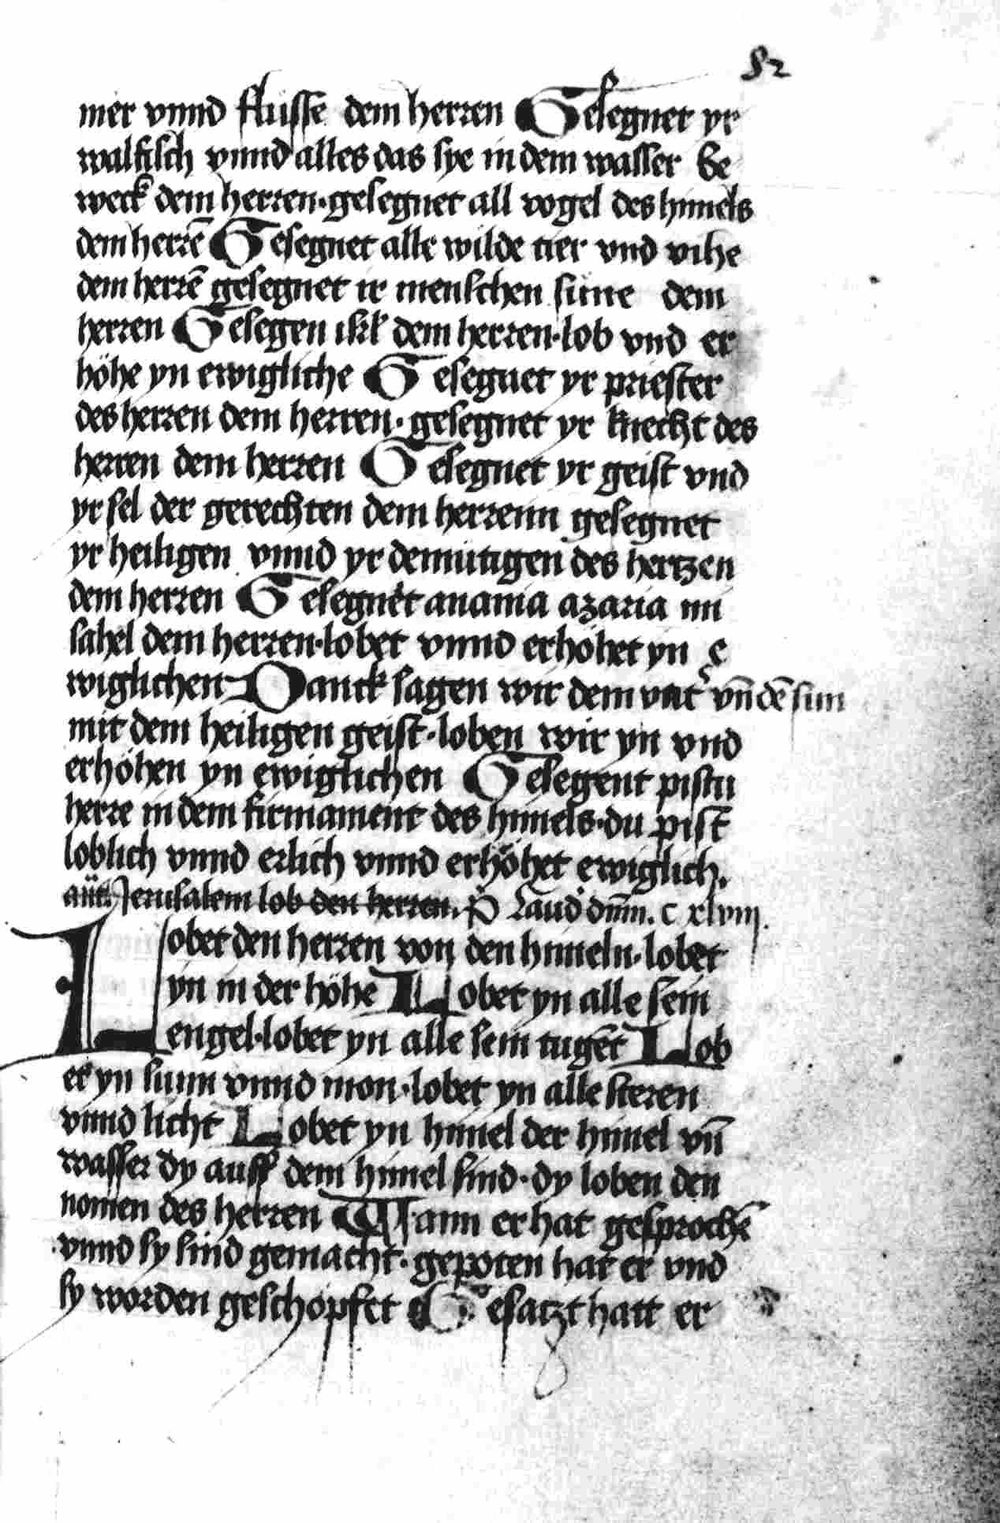 82
mer vnnd flusse dem herren Gesegnet yr
walfisch vnnd alles das sye in dem wasser be
weck dem herren · gesegnet all vogel des himels
dem herrē Gesegnet alle wilde tier vnd vihe
dem herrē gesegnet ir menschen sune dem
herren Gesegen isrl dem herren · lob vnd er
höhe yn ewigliche Gesegnet yr priester
des herren dem herren · gesegnet yr knecht des
herren dem herren Gesegnet yr geist vnd
yr sel der gerechten dem herrenn gesegnet
yr heiligen vnnd yr demutigen des hertzen
dem herren Gesegnet anania azaria mi
sahel dem herren · lobet vnnd erhöhet yn e
wiglichen Danck sagen wir dem vat vn̄ dē sun
mit dem heiligen geist · loben wir yn vnd
erhöhen yn ewiglichen Gesegent pistu
herre in dem firmament des himels · du pist
loblich vnnd erlich vnnd erhöhet ewiglich.
ant Jerusalem lob den herren. P Laud dnm. c xlviij.
Lobet den herren von den himeln · lobet
yn in der höhe Lobet yn alle sein
engel · lobet yn alle sein tugēt Lob
et yn sunn vnnd mon · lobet yn alle steren
vnnd licht Lobet yn himel der himel vn̄
wasser dy auff dem himel sind · dy loben den
nomen des herren Wann er hat gesprochē
vnnd sy sind gemacht · gepoten hat er vnd
sy worden geschöpfet Gesatzt hatt er